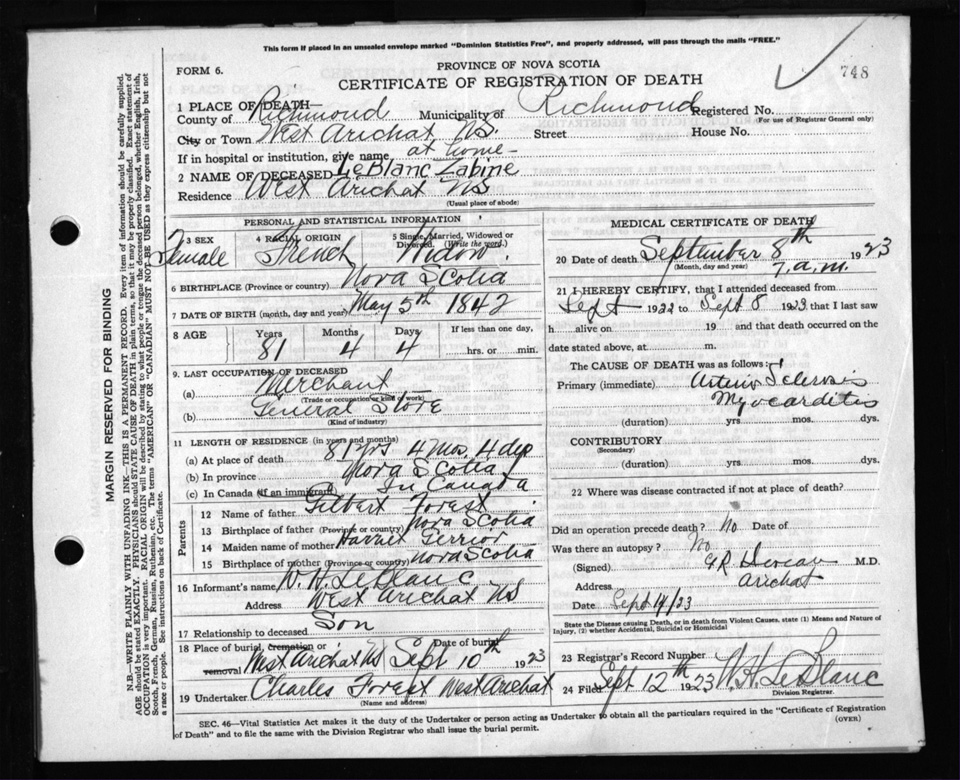 This form if placed in an unsealed envelope marked "Dominion Statistics Free", and properly addressed, will pass through the mails "FREE."
PROVINCE OF NOVA SCOTIA
FORM 6.
CERTIFICATE OF REGISTRATION OF DEATH
748
1 PLACE OF DEATH—
County of Richmond Municipality of Richmond Registered No.
(For use of Registrar General only)
City or Town West Arichat NS. Street House No.
If in hospital or institution, give name at home
2 NAME OF DECEASED LeBlanc Zabine
Residence West Arichat NS
(Usual place of abode)
PERSONAL AND STATISTICAL INFORMATION
3 SEX Female
4 RACIAL ORIGIN French
5 Single, Married, Widowed or Divorced. (Write the word.) Widow
6 BIRTHPLACE (Province or country) Nova Scotia
7 DATE OF BIRTH (month, day and year) May 5th 1842
8 AGE Years Months Days If less than one day,
81 4 4 hrs. or min.
9. LAST OCCUPATION OF DECEASED
(a) Merchant
(Trade or occupation or kind of work)
(b) General Store
(Kind of industry)
11 LENGTH OF RESIDENCE (in years and months)
(a) At place of death 81 yrs 4 Mos. 4
(b) In province Nova Scotia
(c) In Canada (if an immigrant) In Canada
Parents
12 Name of father Gilbert Forest
13 Birthplace of father (Province or country) Nova Scotia
14 Maiden name of mother Harriet Terrior
15 Birthplace of mother (Province or country) Nova Scotia
16 Informant's name W. H. LeBlanc
Address West Arichat NS
17 Relationship to deceased Son
18 Place of burial, cremation or removal West Arichat NS Date of burial Sept 10th 1923
19 Undertaker Charles Forest West Arichat
(Name and address)
MEDICAL CERTIFICATE OF DEATH
20 Date of death September 8th 1923
(Month, day and year) 7. a.m.
21 I HEREBY CERTIFY, that I attended deceased from
Sept 1922 to Sept 8 1923 that I last saw
h alive on 19 and that death occurred on the
date stated above, at m.
The CAUSE OF DEATH was as follows:
Primary (immediate) Arterio Sclerosis
Myocarditis
(duration) yrs mos. dys.
CONTRIBUTORY
(Secondary)
(duration) yrs. mos. dys.
22 Where was disease contracted if not at place of death?
Did an operation precede death? No Date of
Was there an autopsy? No
(Signed) M.D.
Address Arichat
Date Sept 14/23
State the Disease causing Death, or in death from Violent Causes, state (1) Means and Nature of
Injury, (2) whether Accidental, Suicidal or Homicidal
23 Registrar's Record Number
24 Filed Sept 12th 1923 W. H. LeBlanc
Division Registrar.
SEC. 46—Vital Statistics Act makes it the duty of the Undertaker or person acting as Undertaker to obtain all the particulars required in the "Certificate of Registration
of Death" and to file the same with the Division Registrar who shall issue the burial permit.
(OVER)
MARGIN RESERVED FOR BINDING
N.B.—WRITE PLAINLY WITH UNFADING INK—THIS IS A PERMANENT RECORD. Every item of information should be carefully supplied.
AGE should be stated EXACTLY. PHYSICIANS should STATE CAUSE OF DEATH in plain terms, so that it may be properly classified. Exact statement of
OCCUPATION is very important. RACIAL ORIGIN will be described by stating to what people or tongue the deceased person belonged, whether English, Irish,
Scotch, French, German, Russian, Ruthenian, etc. The terms "AMERICAN" OR "CANADIAN" MUST NOT BE USED as they express citizenship but not
a race or people. See instructions on back of Certificate.